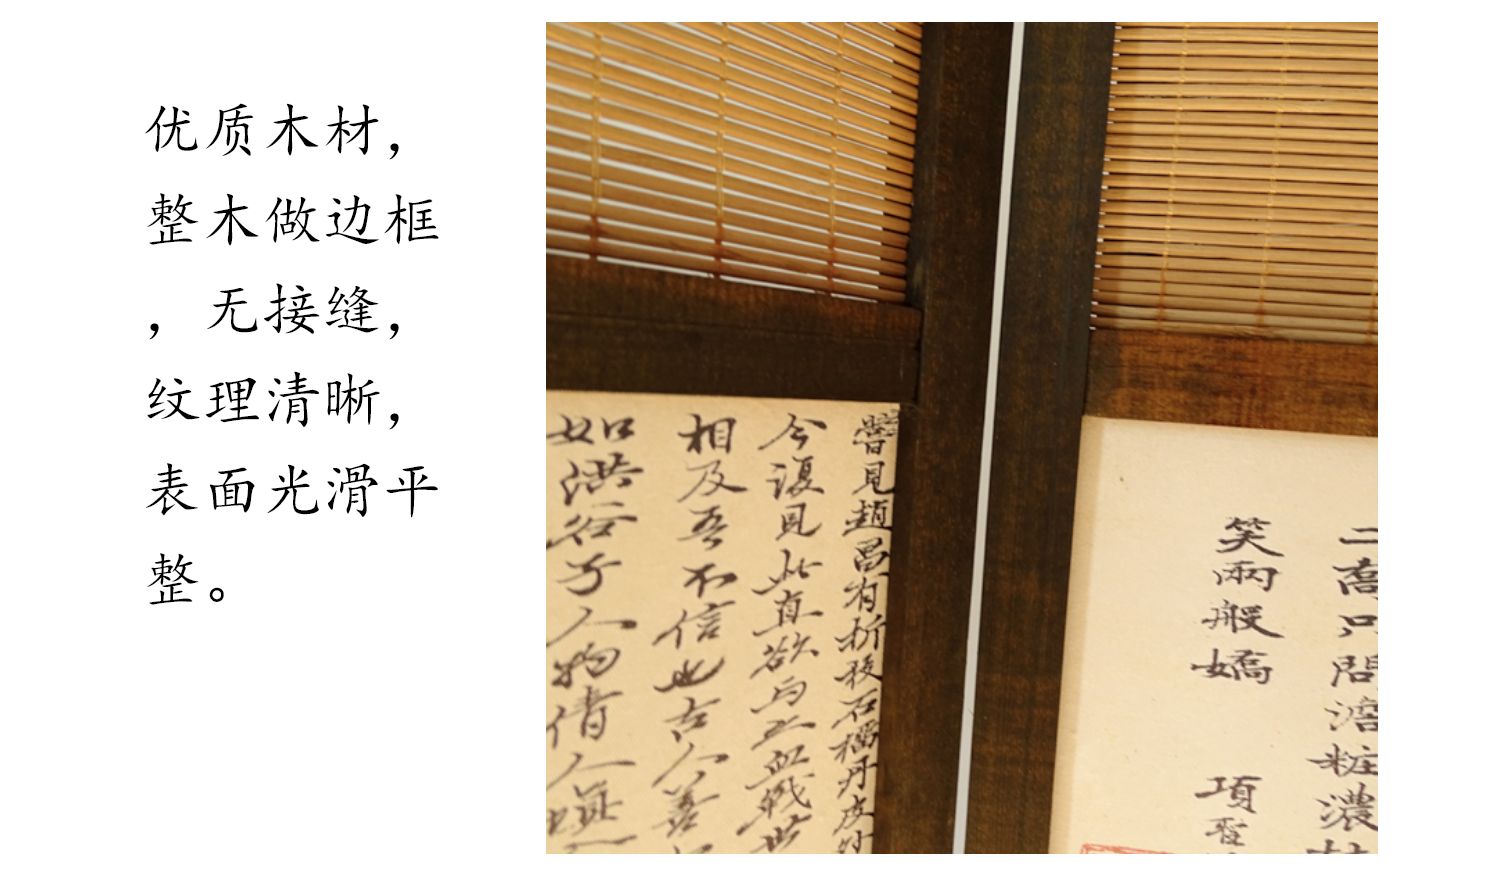 优质木材，
整木做边框
，无接缝，
纹理清晰，
表面光滑平
整。
二喬只問澹粧濃
笑兩般嬌
項聖
嘗見趙昌有折枝石榴丹皮
今復見此直欲與之血戰
相及吾不信也古人善
如洪谷子人物倩人